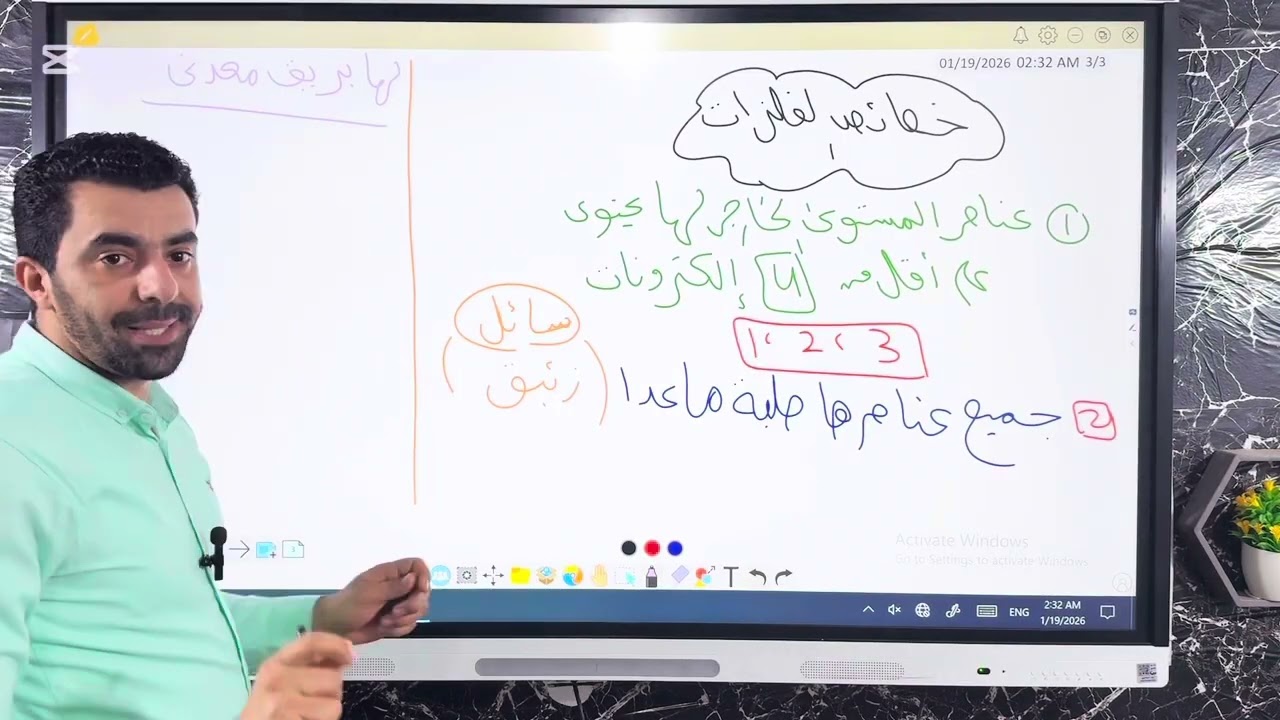 01/19/2026 02:32 AM 3/3
خصائص لفلزات
① عناصر المستوى لخارجي لها يحتوى
على أقل من 4 إلكترونات
1، 2، 3
2 جميع عناصرها صلبة ماعدا
سائل
(زئبق)
لها بريق معدنى
Activate Windows
Go to Settings to activate Windows
ENG
2:32 AM
1/19/2026